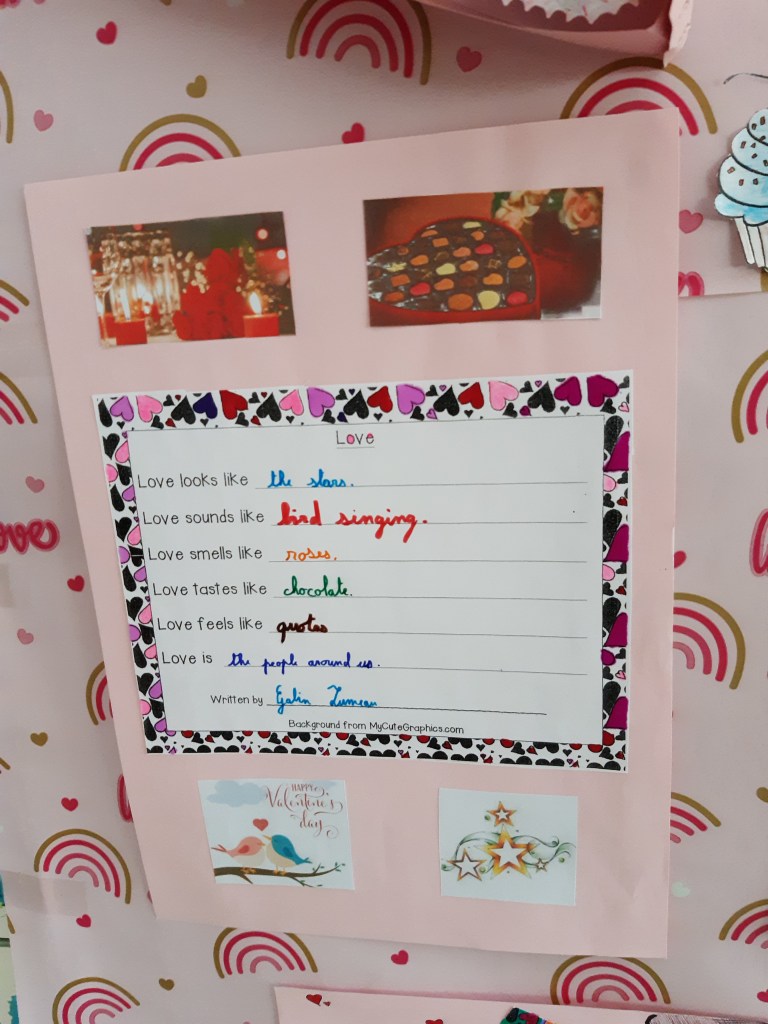 Love
Love looks like the stars.
Love sounds like bird singing.
Love smells like roses.
Love tastes like chocolate.
Love feels like quotes
Love is the people around us.
Written by
Background from MyCuteGraphics.com
HAPPY
Valentine's
day
love